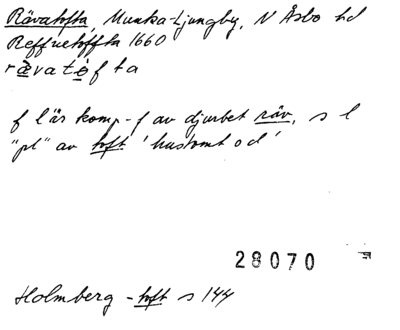 Rävatofta, Munka-Ljungby, N Åsbo hd
Reffuetofta 1660
rävatofta
f l är komp-f av djurbet räv, s l
"pl" av toft 'hustomt o d'
28070
Holmberg -toft s 144